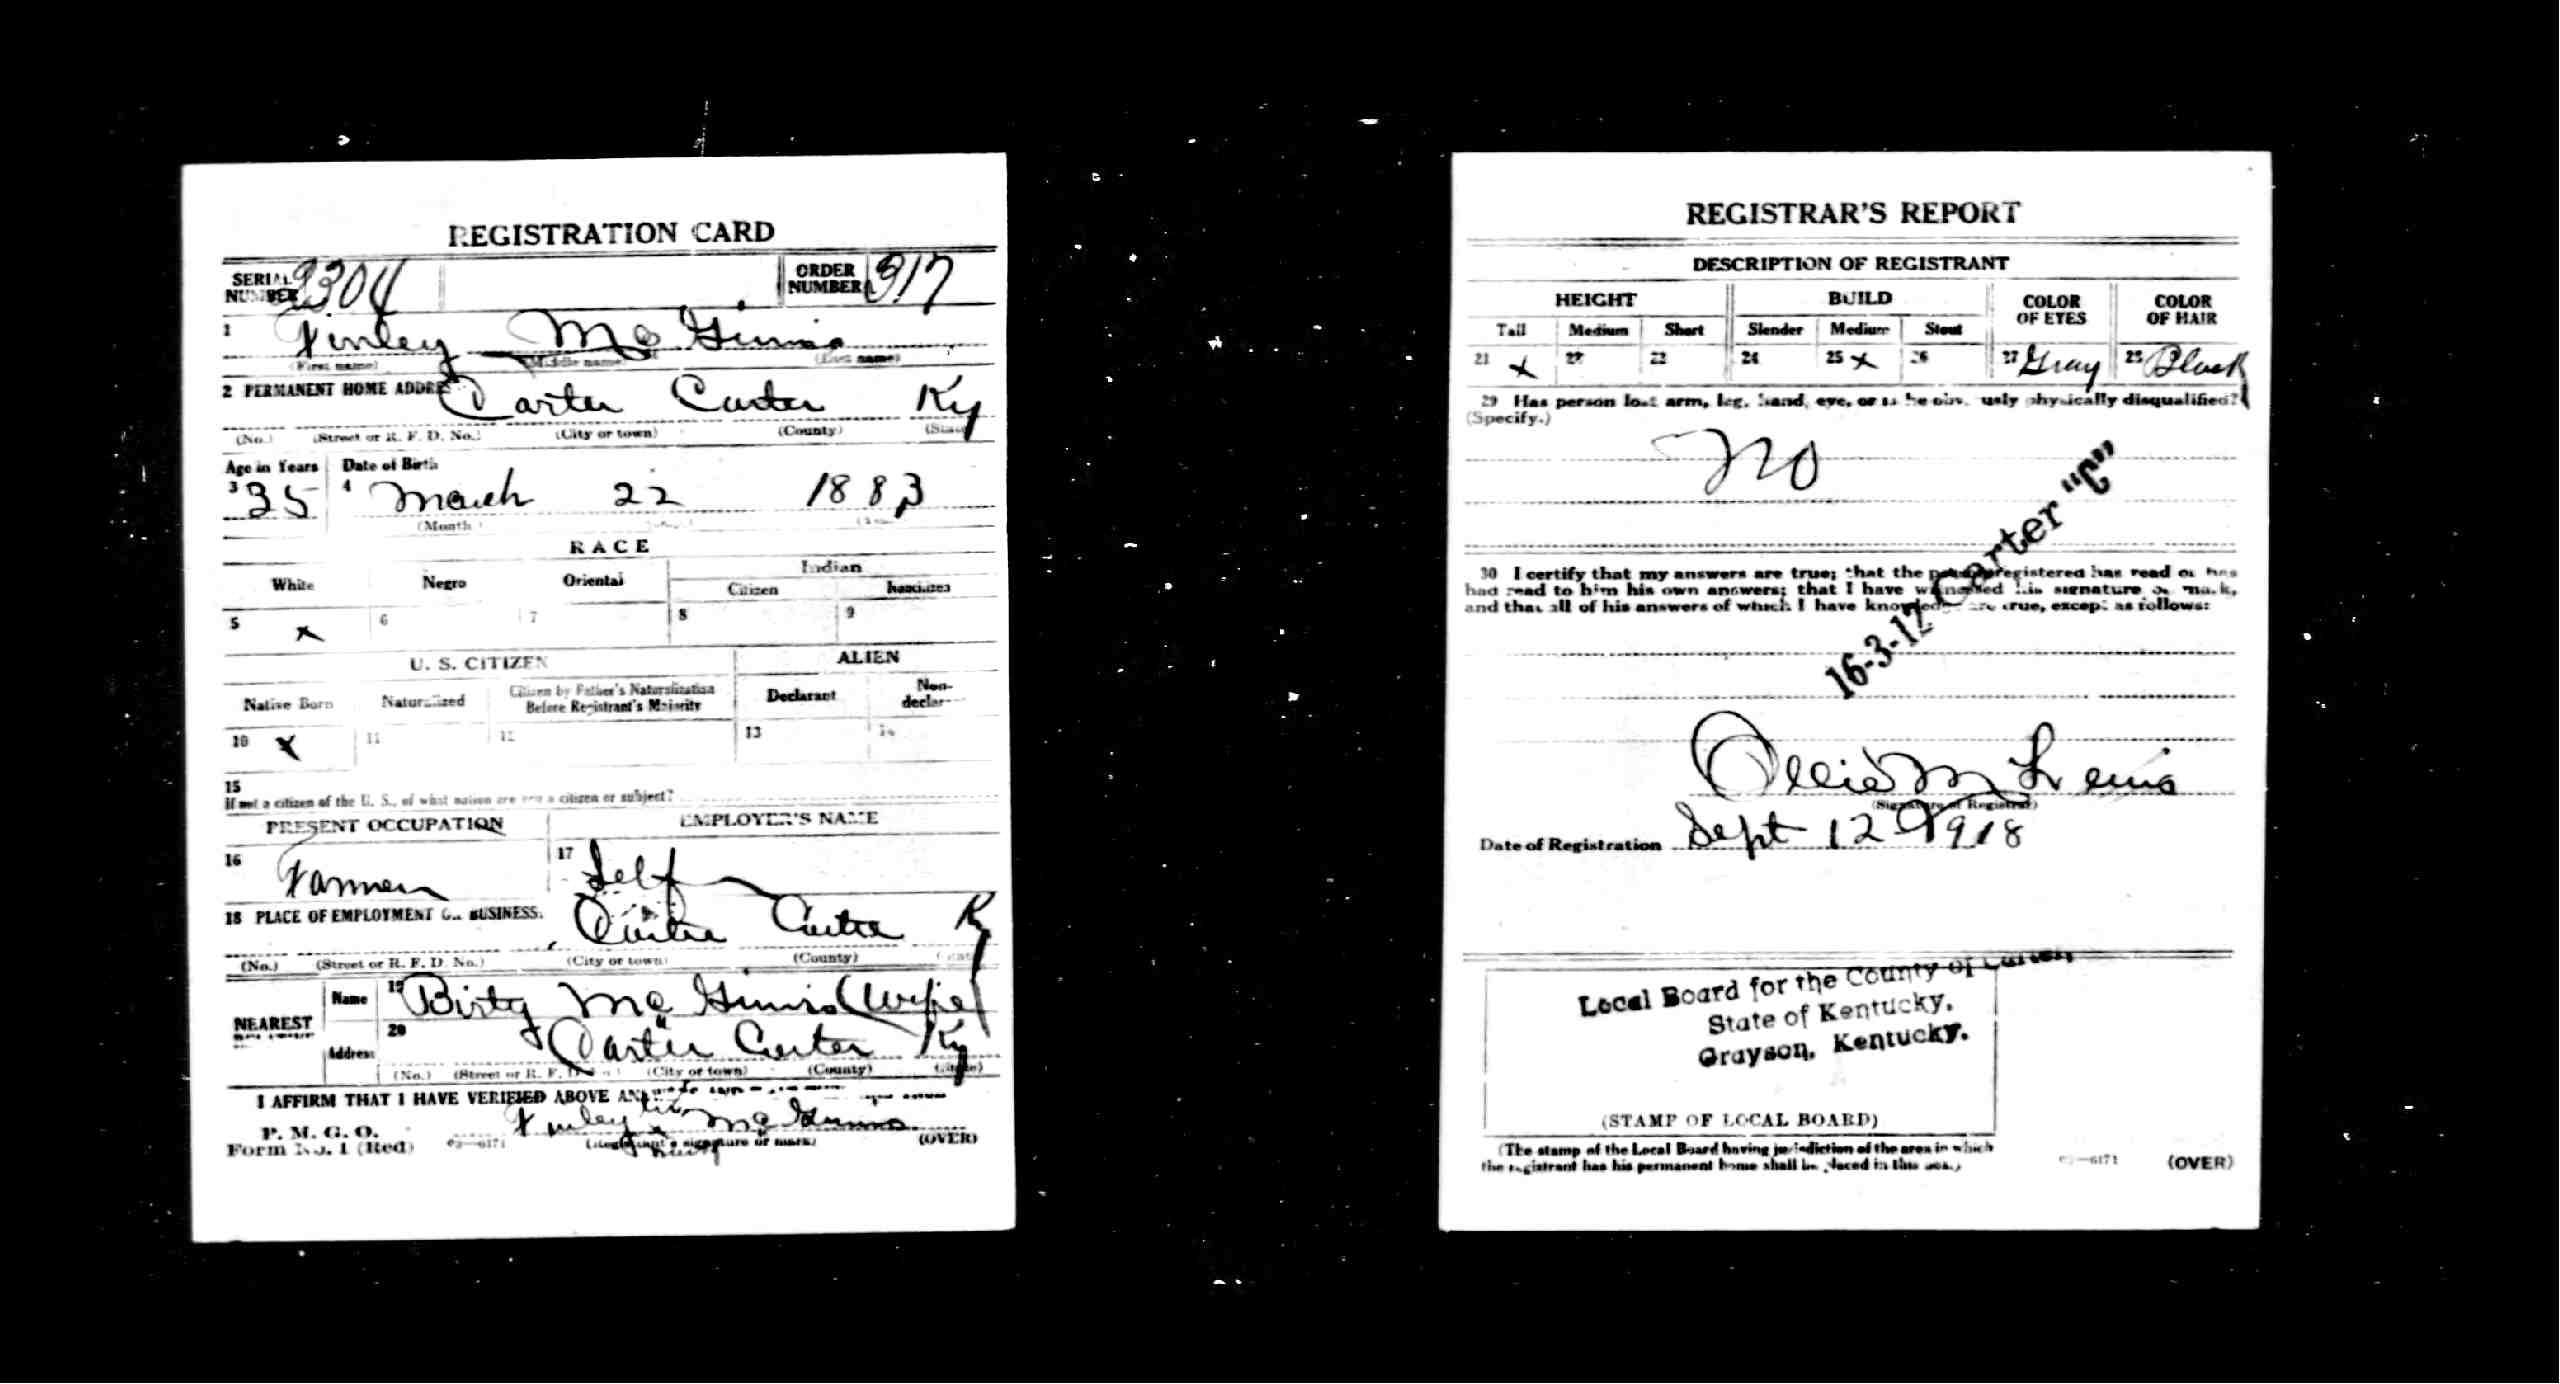 REGISTRATION CARD
SERIAL NUMBER 2304 ORDER NUMBER 317
1 Finley McGinnis
(First name) (Middle name) (Last name)
2 PERMANENT HOME ADDRESS Carter Carter Ky
(No.) (Street or R. F. D. No.) (City or town) (County) (State)
Age in Years Date of Birth
3 35 4 March 22 1883
(Month)
RACE
White Negro Oriental Indian
Citizen
5 x 6 7 8 9
U. S. CITIZEN ALIEN
Native Born Naturalized Citizen by Father's Naturalization Before Registrant's Majority Declarant Non-declar
10 x 11 12 13 14
15
If not a citizen of the U. S., of what nation are you a citizen or subject?
PRESENT OCCUPATION EMPLOYER'S NAME
16 Farmer 17 Self
18 PLACE OF EMPLOYMENT OR BUSINESS: Carter Carter Ky
(No.) (Street or R. F. D. No.) (City or town) (County) (State)
NEAREST Name 19 Birty McGinnis (Wife)
Address 20 Carter Carter Ky
(No.) (Street or R. F. D. No.) (City or town) (County) (State)
I AFFIRM THAT I HAVE VERIFIED ABOVE
P. M. G. O.
Form No. 1 (Red) 03—6171 Finley McGinnis
(Registrant's signature or mark) (OVER)
REGISTRAR'S REPORT
DESCRIPTION OF REGISTRANT
HEIGHT BUILD COLOR OF EYES COLOR OF HAIR
Tall Medium Short Slender Medium Stout
21 x 22 23 24 25 x 26 27 Gray 28 Black
29 Has person lost arm, leg, hand, eye, or is he obviously physically disqualified?
(Specify.)
No
30 I certify that my answers are true; that the person registered has read or has
had read to him his own answers; that I have witnessed his signature or mark,
and that all of his answers of which I have knowledge are true, except as follows:
16-3-17 Carter "C"
Ollie M Lewis
(Signature of Registrar)
Date of Registration Sept 12 1918
Local Board for the County of Carter,
State of Kentucky,
Grayson, Kentucky.
(STAMP OF LOCAL BOARD)
(The stamp of the Local Board having jurisdiction of the area in which
the registrant has his permanent home shall be placed in this box.)
03—6171 (OVER)